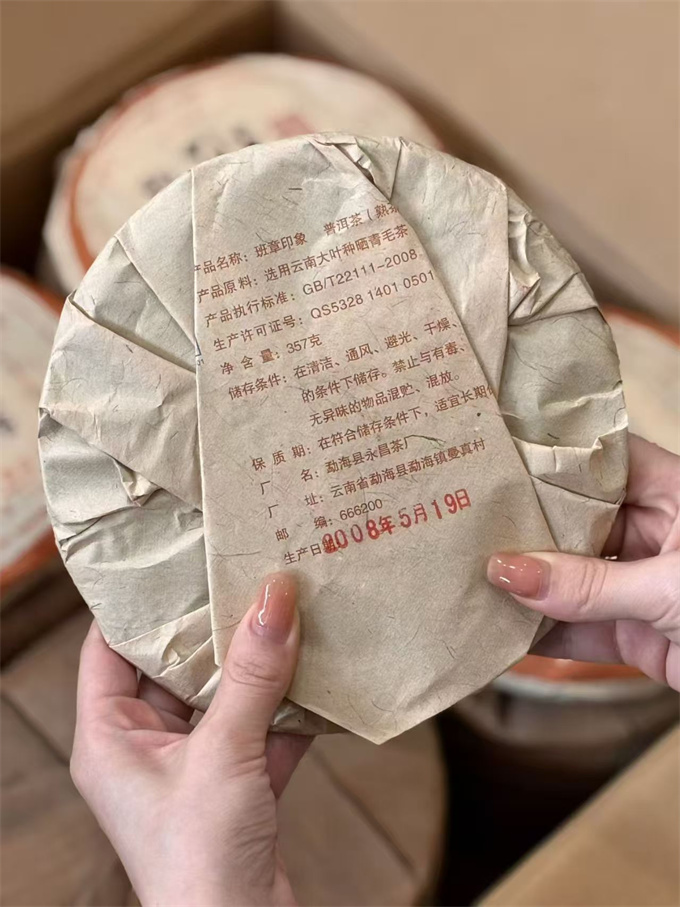 产品名称：班章印象 普洱茶（熟茶
产品原料：选用云南大叶种晒青毛茶
产品执行标准：GB/T22111-2008
生产许可证号：QS5328 1401 0501
净 含 量：357克
储存条件：在清洁、通风、避光、干燥、
的条件下储存。禁止与有毒、
无异味的物品混贮、混放。
保 质 期：在符合储存条件下，适宜长期
厂 名：勐海县永昌茶厂
厂 址：云南省勐海县勐海镇曼真村
邮 编：666200
生产日期2008年5月19日